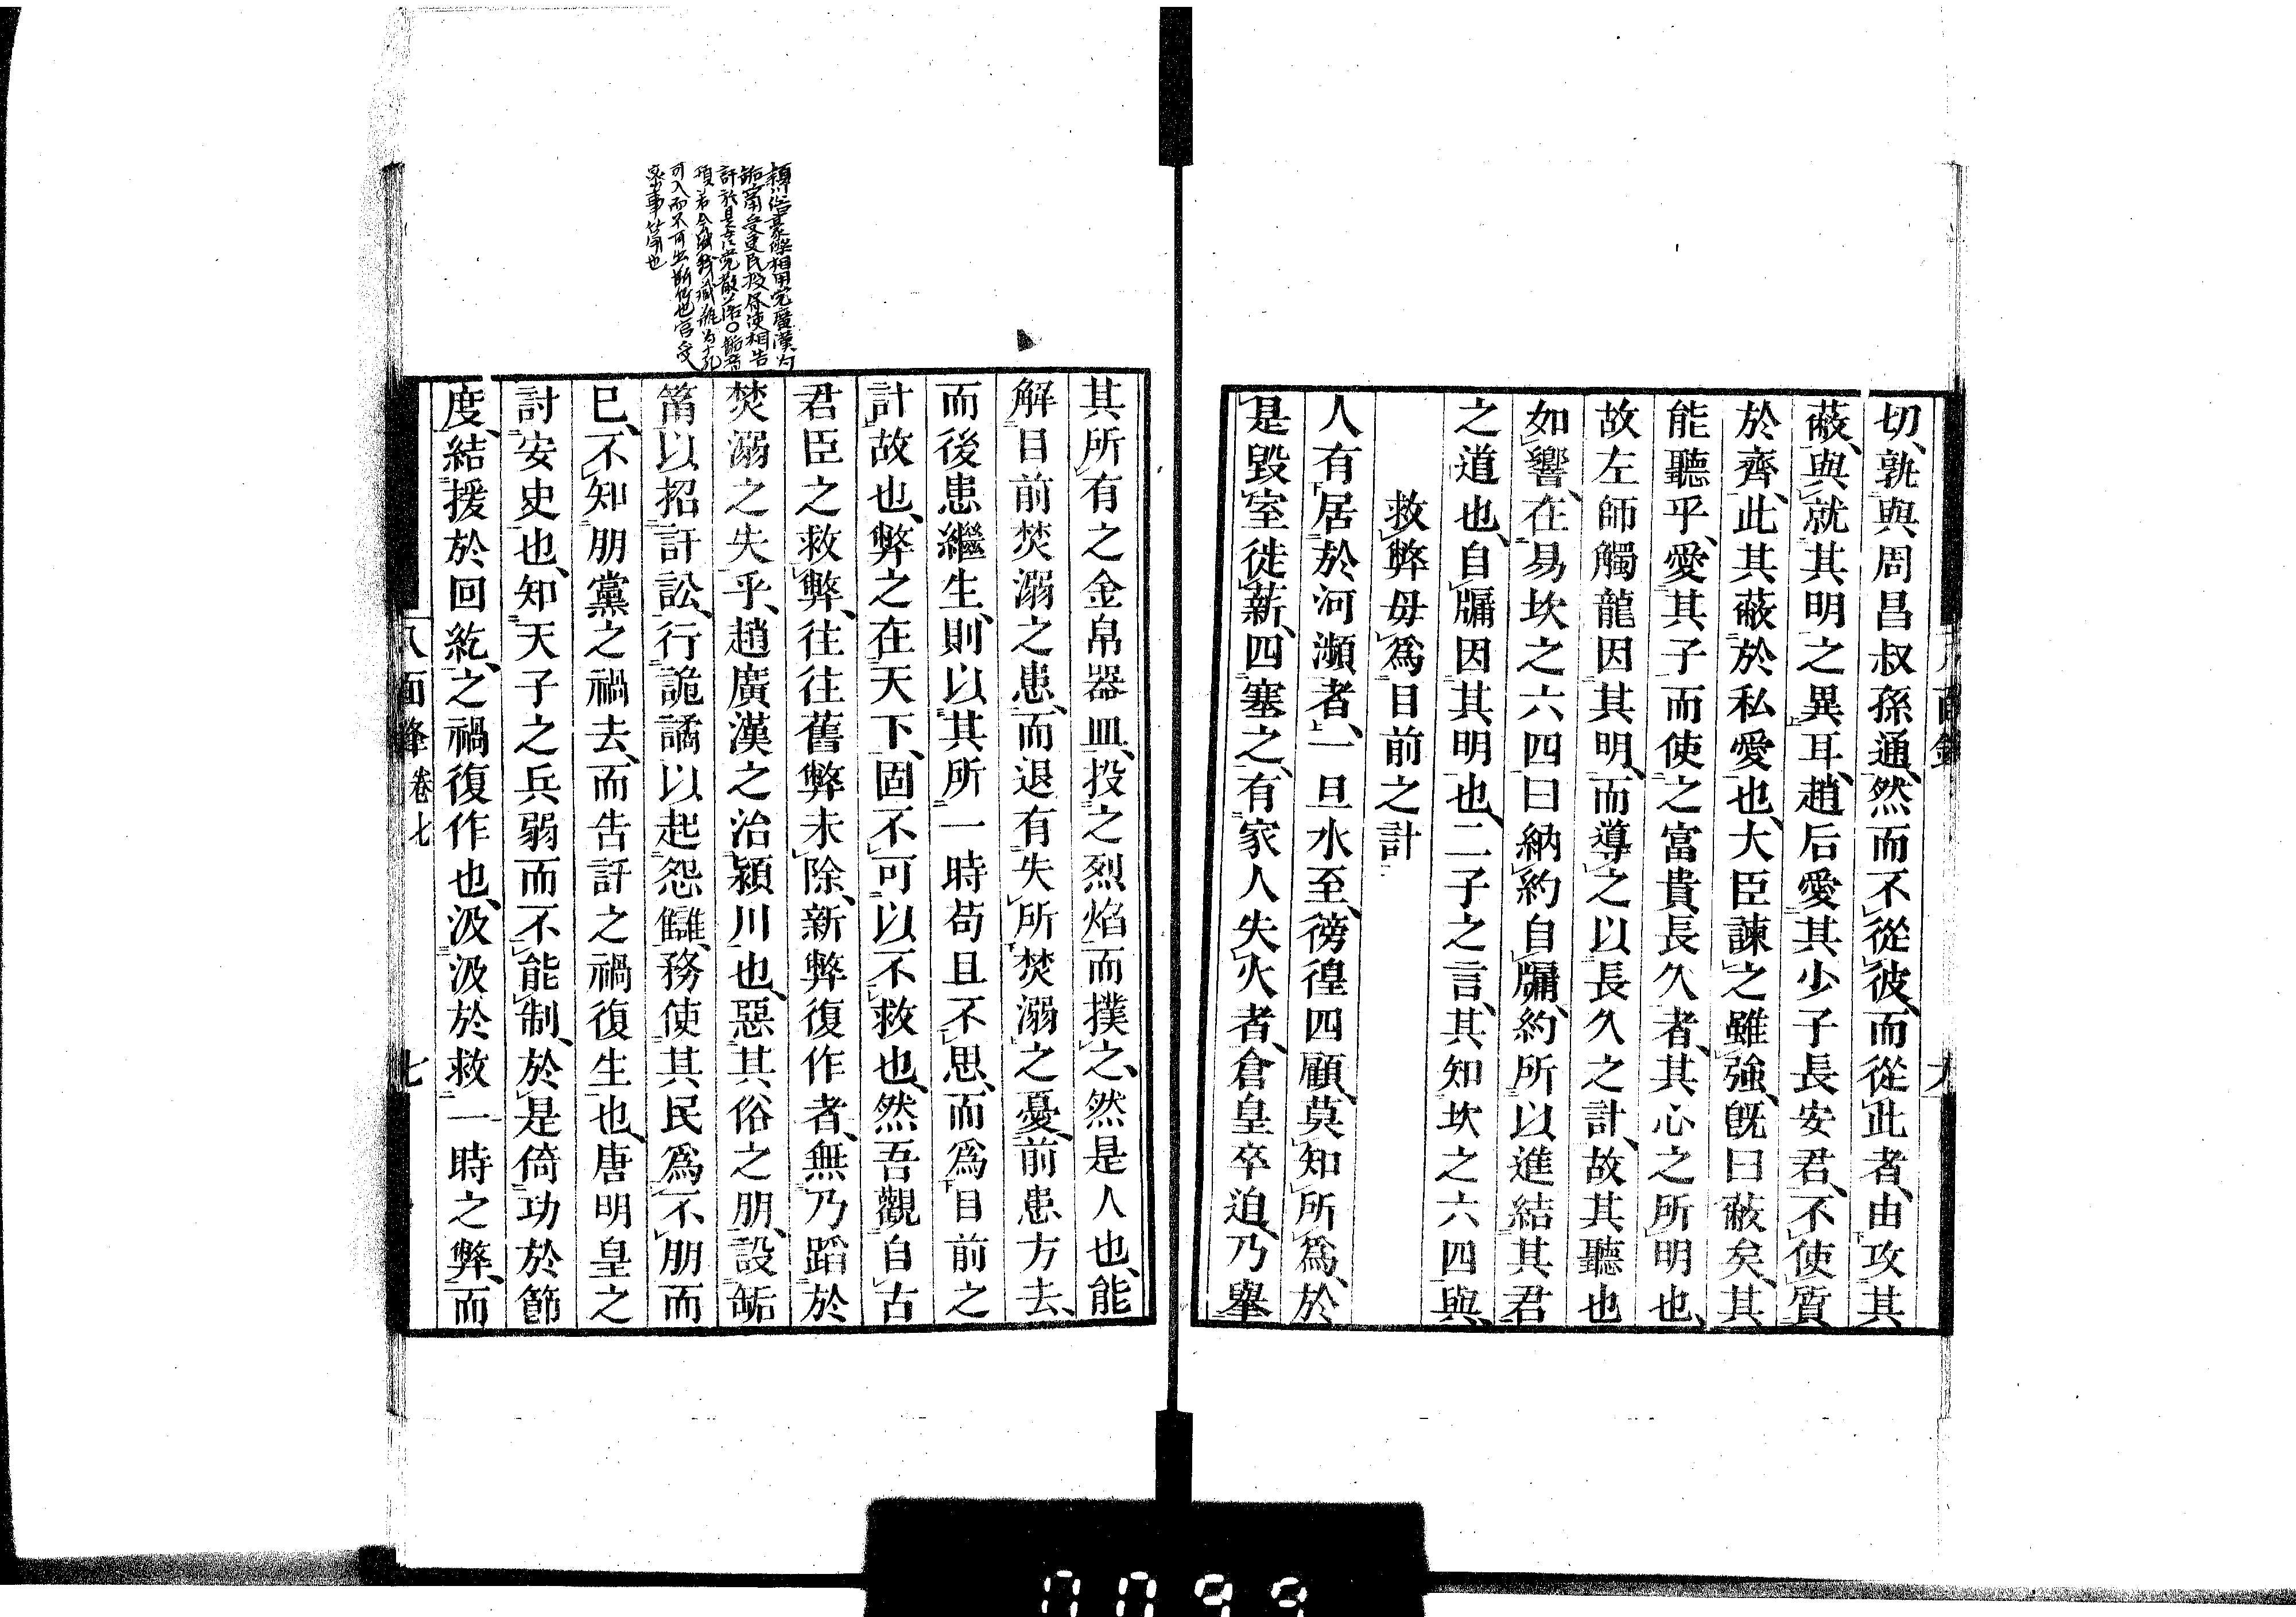 切、孰與周昌叔孫通、然而不從彼、而從此者、由攻其
蔽、與就其明之異耳、趙后愛其少子長安君、不使質
於齊、此其蔽於私愛也、大臣諫之雖強、既曰蔽矣、其
能聽乎、愛其子而使之富貴長久者、其心之所明也、
故左師觸龍因其明、而導之以長久之計、故其聽也
如響、在易坎之六四曰納約自牖、約所以進結其君
之道也、自牖因其明也、二子之言、其知坎之六四與、
救弊毋爲目前之計
人有居於河瀕者、一旦水至、徬徨四顧、莫知所爲、於
是毀室徙薪、四塞之、有家人失火者、倉皇卒迫、乃舉
其所有之金帛器皿、投之烈焰而撲之、然是人也、能
解目前焚溺之患、而退有失所焚溺之憂、前患方去、
而後患繼生、則以其所一時苟且不思、而爲目前之
計故也、弊之在天下、固不可以不救也、然吾觀自古
君臣之救弊、往往舊弊未除、新弊復作者、無乃蹈於
焚溺之失乎、趙廣漢之治潁川也、惡其俗之朋、設缿
筩以招訐訟、行詭譎以起怨讎、務使其民爲不朋而
已、不知朋黨之禍去、而告訐之禍復生也、唐明皇之
討安史也、知天子之兵弱而不能制、於是倚功於節
度、結援於回紇、之禍復作也、汲汲於救一時之弊、而
八面鋒 卷七 七